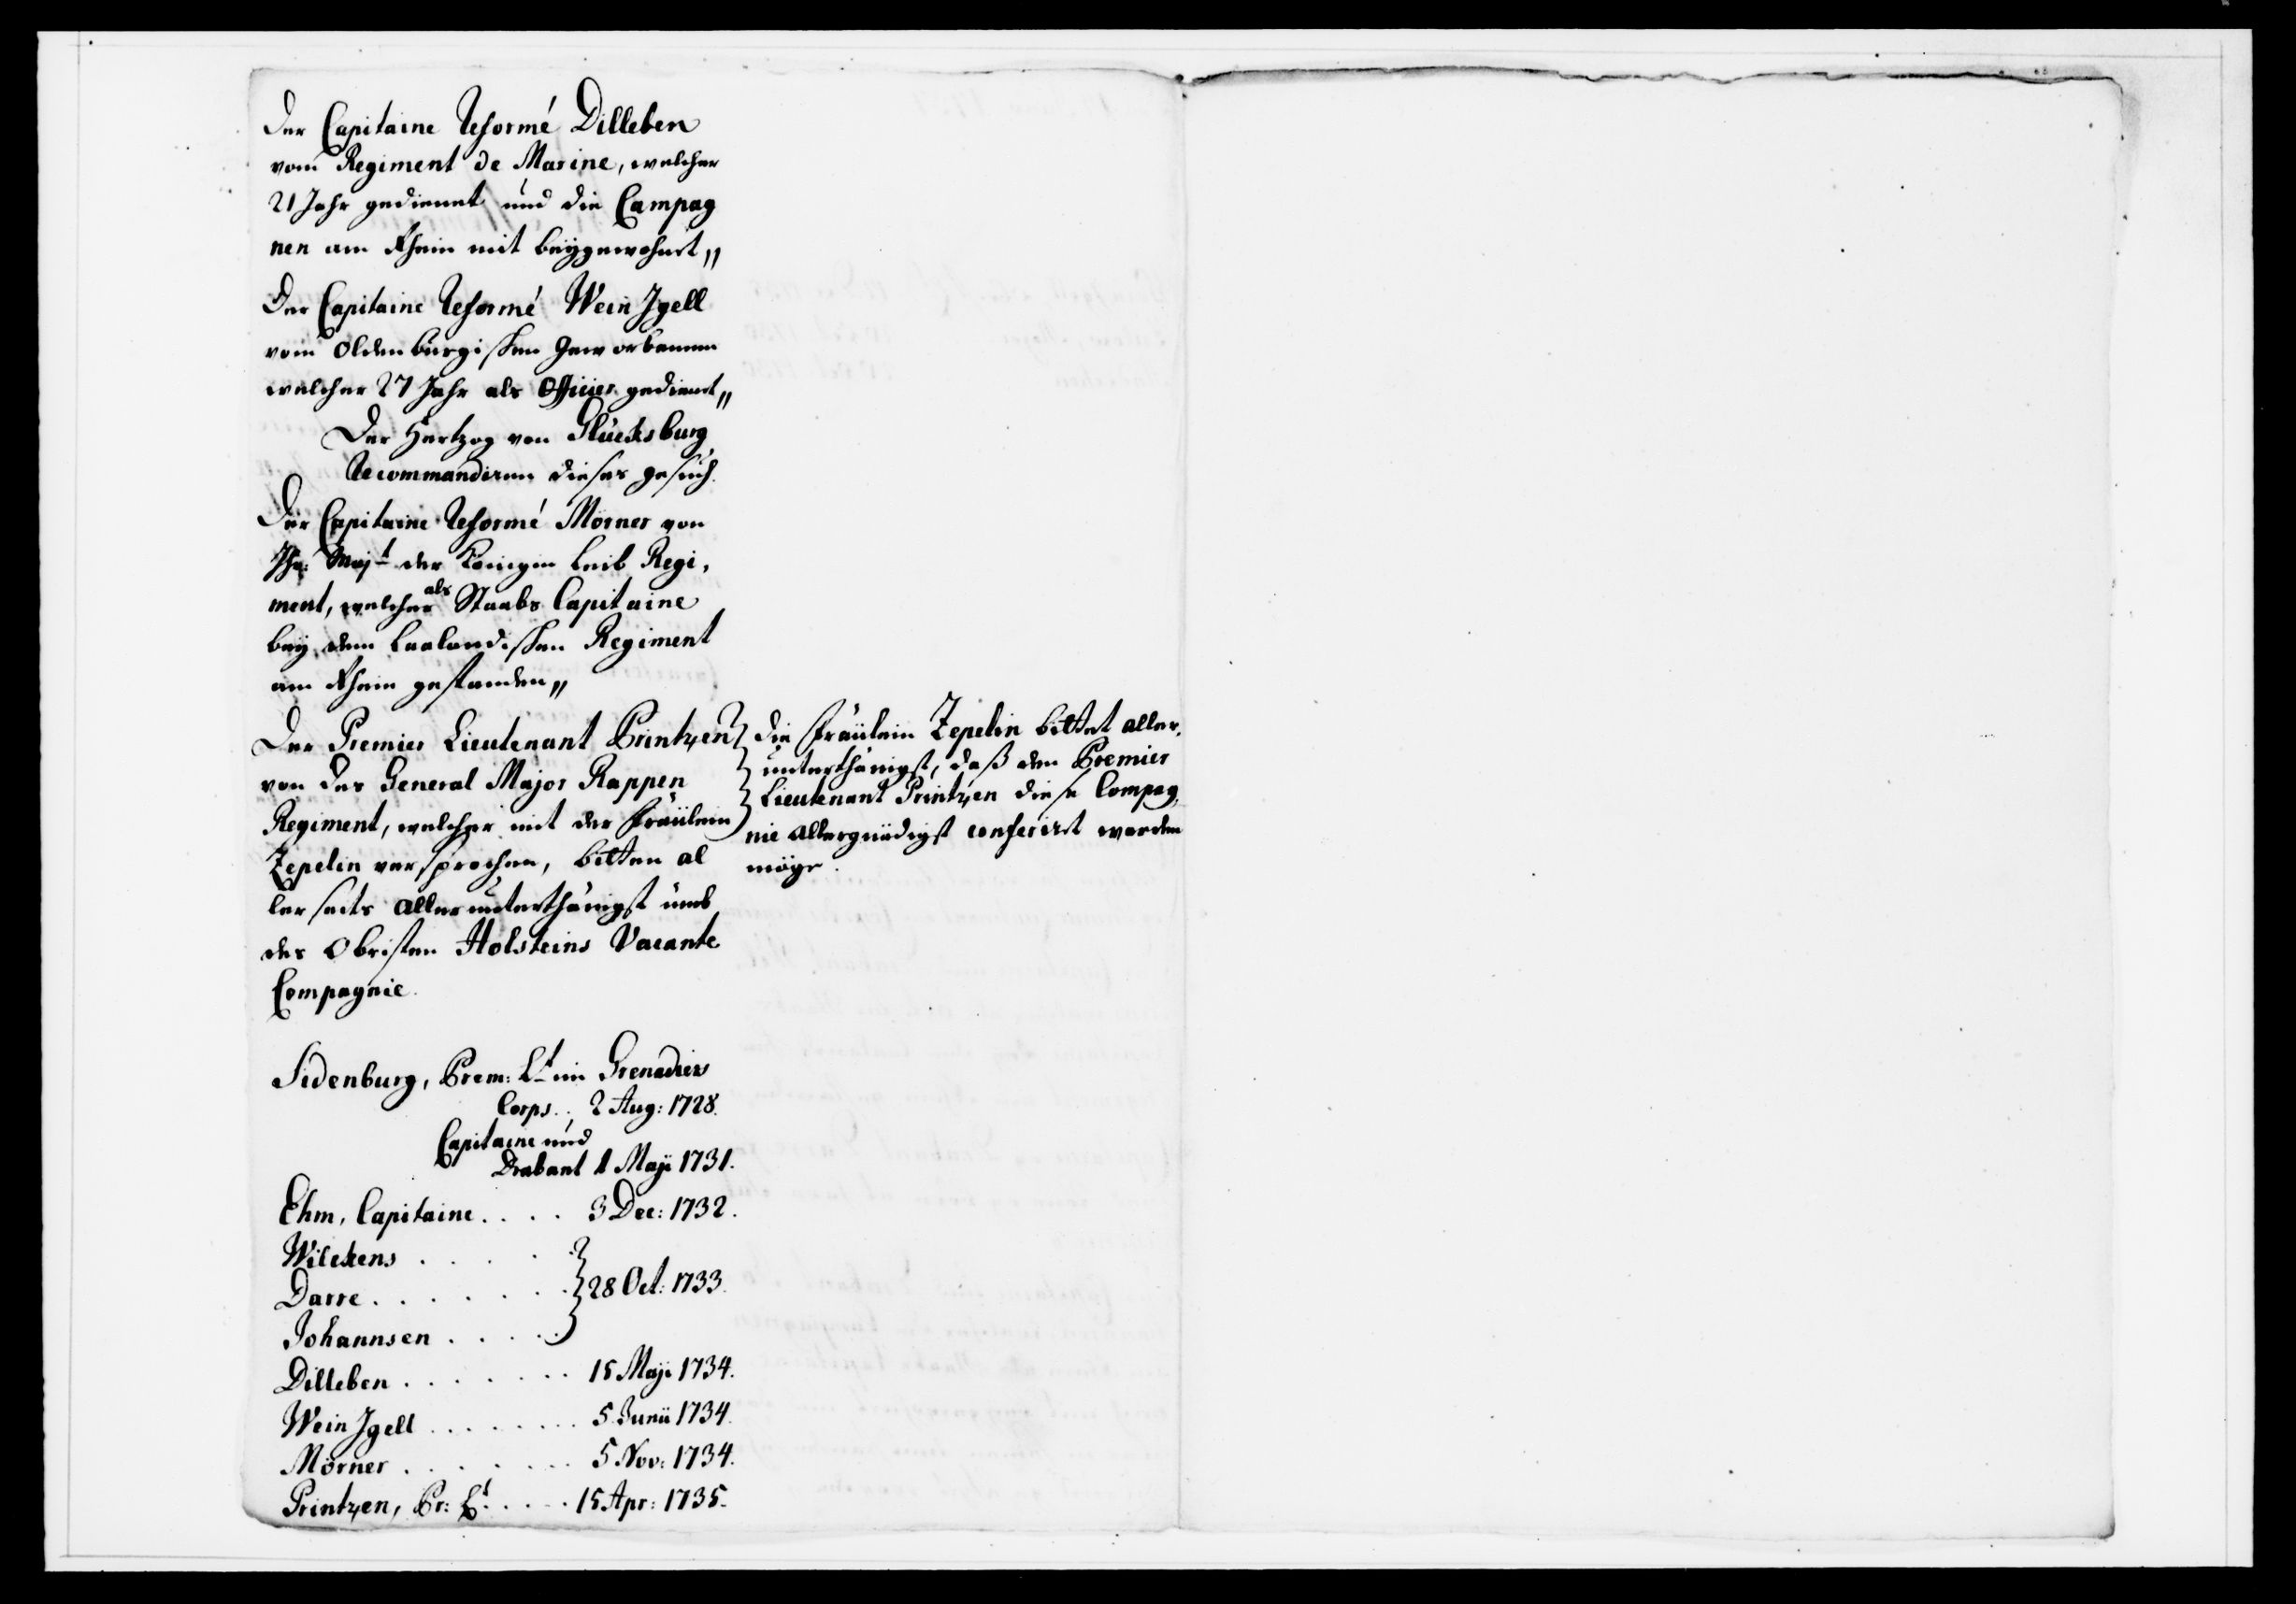 Der Capitaine Reformé Dilleben
vom Regiment de Marine, welcher
21 Jahr gedienet und die Campag
nen am Rhein mit beÿgewohnet,,
Der Capitaine Reformé Wein Jgell
vom Oldenburgischen Geworbenen
welcher 27 Jahr als Officier gedienet,,
Der Hertzog von Glücksburg
Recommandiren dieses gesuch.
Der Capitaine Reformé Mörner von
Ihr: Maj:t der Königin Leib Regi,
ment, welcher als Staabs Capitaine
beÿ dem Laalandischen Regiment
am Rhein gestanden,,
Der Premier Lieutenant Printzen
von des General Major Rappen
Regiment, welcher mit der Fräülein
Zepelin versprochen, bitten al
lerseits allerunterthänigst umb
des Obristen Holsteins Vacante
Compagnie.
Die Fräülein Zepelin bittet aller,
unterthänigst, daß dem Premier
Lieutenant Printzen diese Compag,
nie allergnädigst conferirt werden
möge.
Sidenburg, Prem: Lt im Grenadier
Corps.. 2 Aug: 1728.
Capitaine und
Drabant 1 Maji 1731.
Ehm, Capitaine.... 3 Dec: 1732.
Wilckens . . . .
Darre . . . . . . . 28 Oct: 1733.
Johannsen . . . . .
Dilleben . . . . . . . 15 Maji 1734.
Wein Jgell . . . . . . . 5 Junii 1734.
Mörner . . . . . . . 5 Nov: 1734.
Printzen, Pr: Lt. . . . . 15 Apr: 1735.